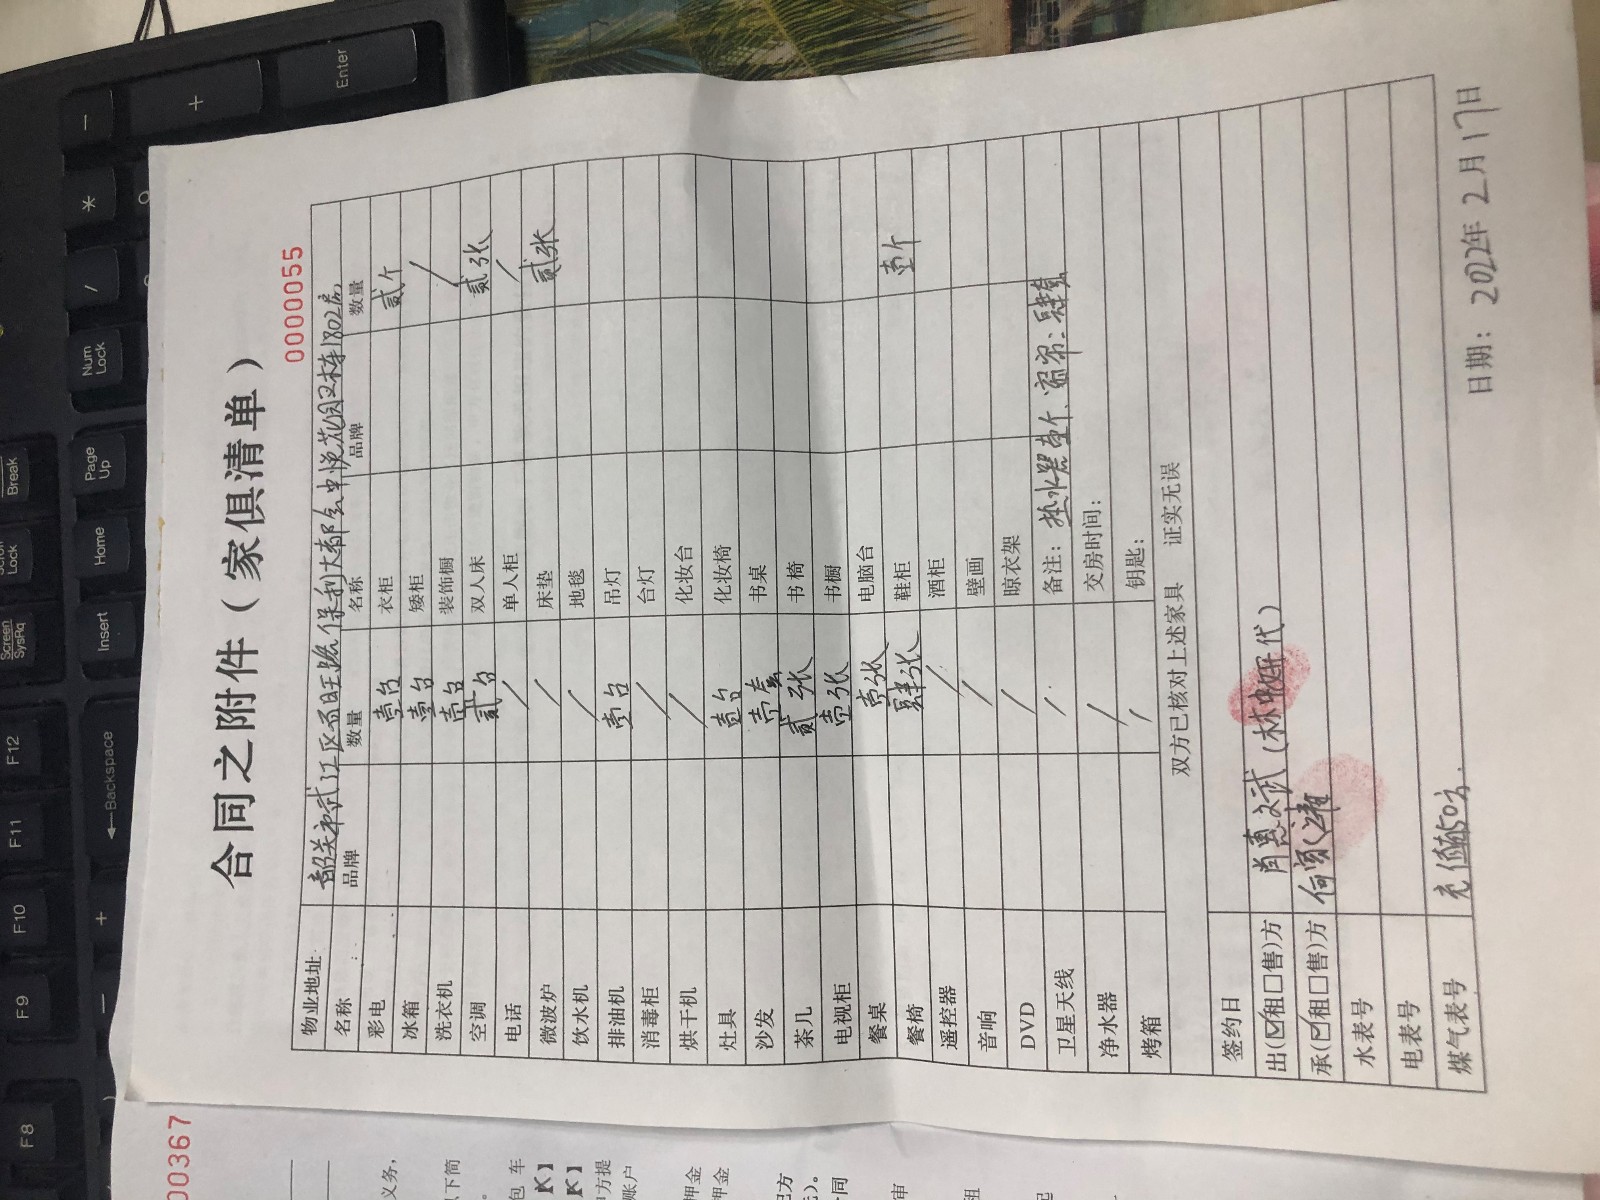 合同之附件（家俱清单）
0000055
物业地址: 韶关市武江区百旺路保利大都会中悦花园2栋1802房
名称 品牌 数量 名称 品牌 数量
彩电 壹台 衣柜 贰个
冰箱 壹台 矮柜
洗衣机 壹台 装饰橱 /
空调 贰台 双人床 贰张
电话 / 单人柜 /
微波炉 / 床垫 贰张
饮水机 / 地毯
排油机 壹台 吊灯
消毒柜 / 台灯
烘干机 / 化妆台
灶具 壹台 化妆椅
沙发 壹套 书桌
茶几 贰张 书椅
电视柜 壹张 书橱
餐桌 壹张 电脑台
餐椅 肆张 鞋柜 壹个
遥控器 / 酒柜
音响 / 壁画
DVD / 晾衣架
卫星天线 / 备注: 热水器壹个、窗帘:肆套
净水器 / 交房时间:
烤箱 / 钥匙:
双方已核对上述家具 证实无误
签约日
出(☑租☐售)方 肖惠斌(林 代)
承(☑租☐售)方 何
水表号
电表号
煤气表号 充值 50元.
日期: 2022年 2月17日
00367
义务,
以下简
包 车
K】
K】
方提
账户
押金
押金
方
元)。
同
审
租
起
F8
F9
F10
F11
F12
Backspace
Screen
SysRq
Scroll
Lock
Break
Insert
Home
Page
Up
Num
Lock
/
*
—
+
Enter